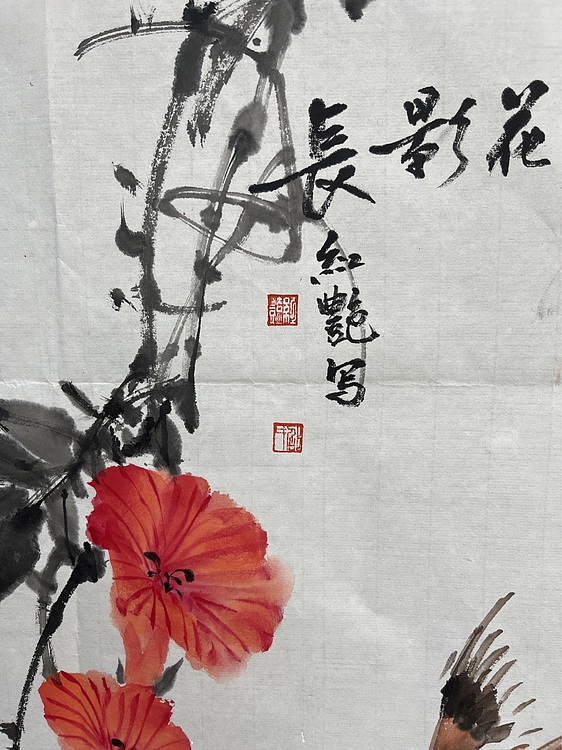 花影長
红艷写